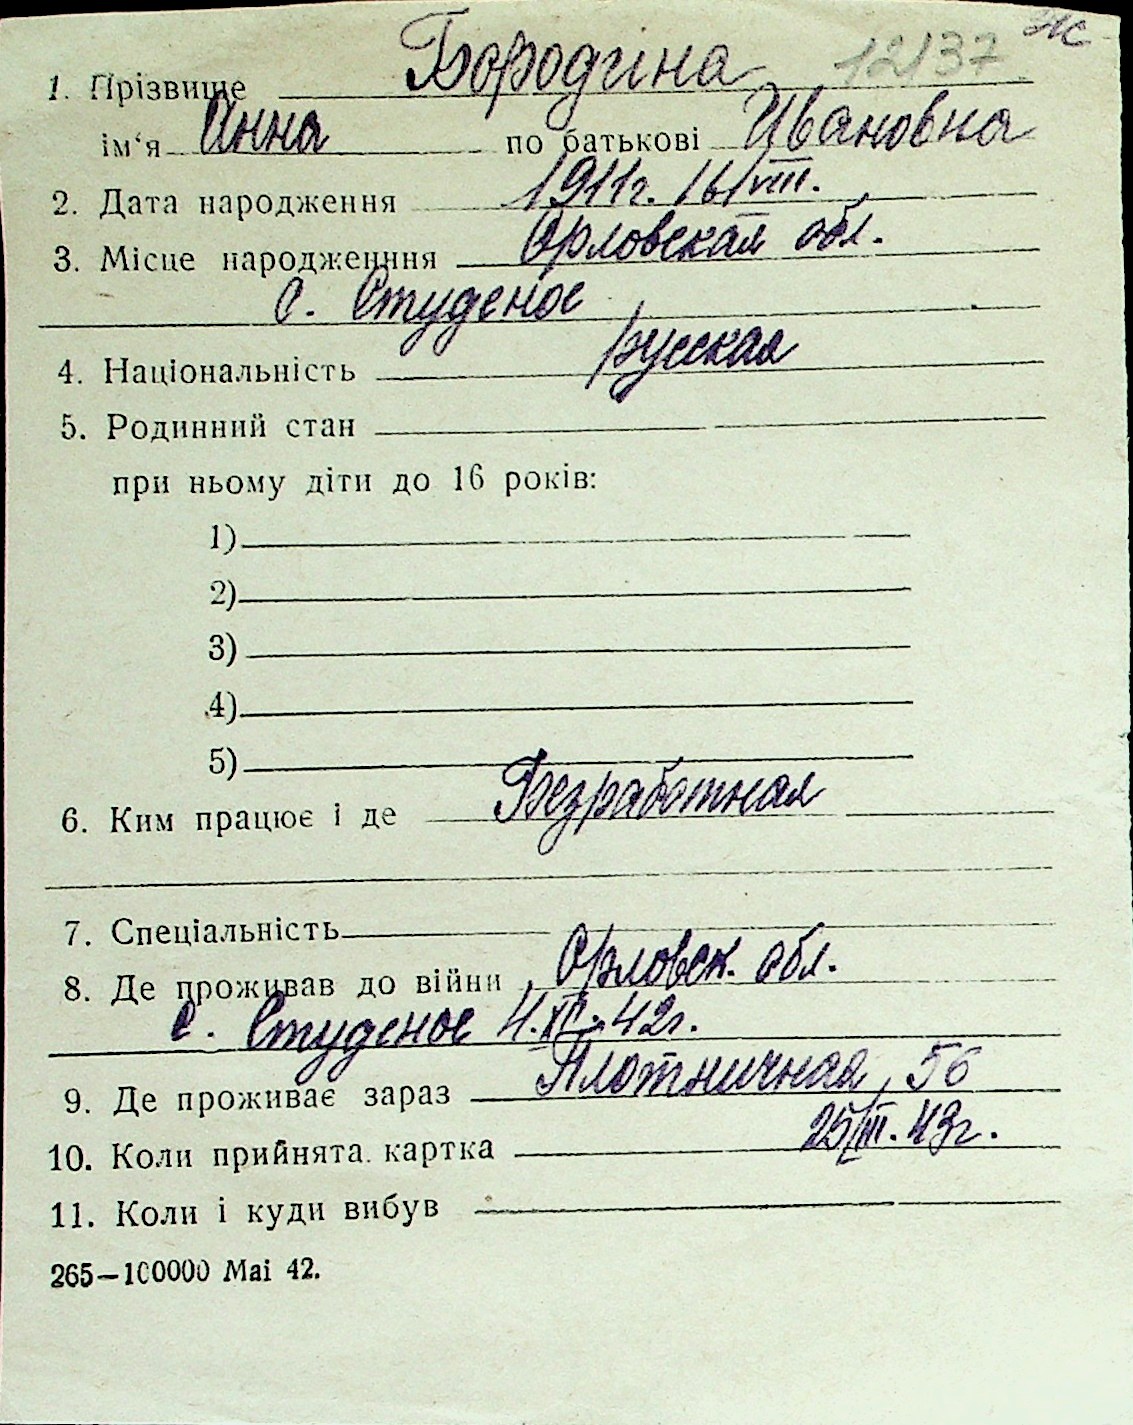 12137 Ж
1. Прізвище Бородина
ім'я Анна по батькові Ивановна
2. Дата народження 1911г. 16/VIII.
3. Місце народження Орловская обл.
с. Студеное
4. Національність русская
5. Родинний стан
при ньому діти до 16 років:
1)
2)
3)
4)
5)
6. Ким працює і де Безработная
7. Спеціальність
8. Де проживав до війни Орловск. обл.
с. Студеное 4.XI.42г.
9. Де проживає зараз Плотничная, 56
10. Коли прийнята картка 25/III.43г.
11. Коли і куди вибув
265—100000 Маі 42.